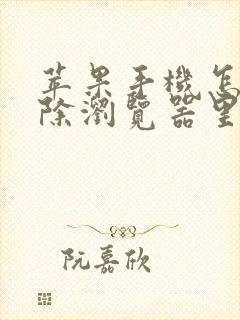 苹果手機怎
除瀏覽器里
阮嘉欣